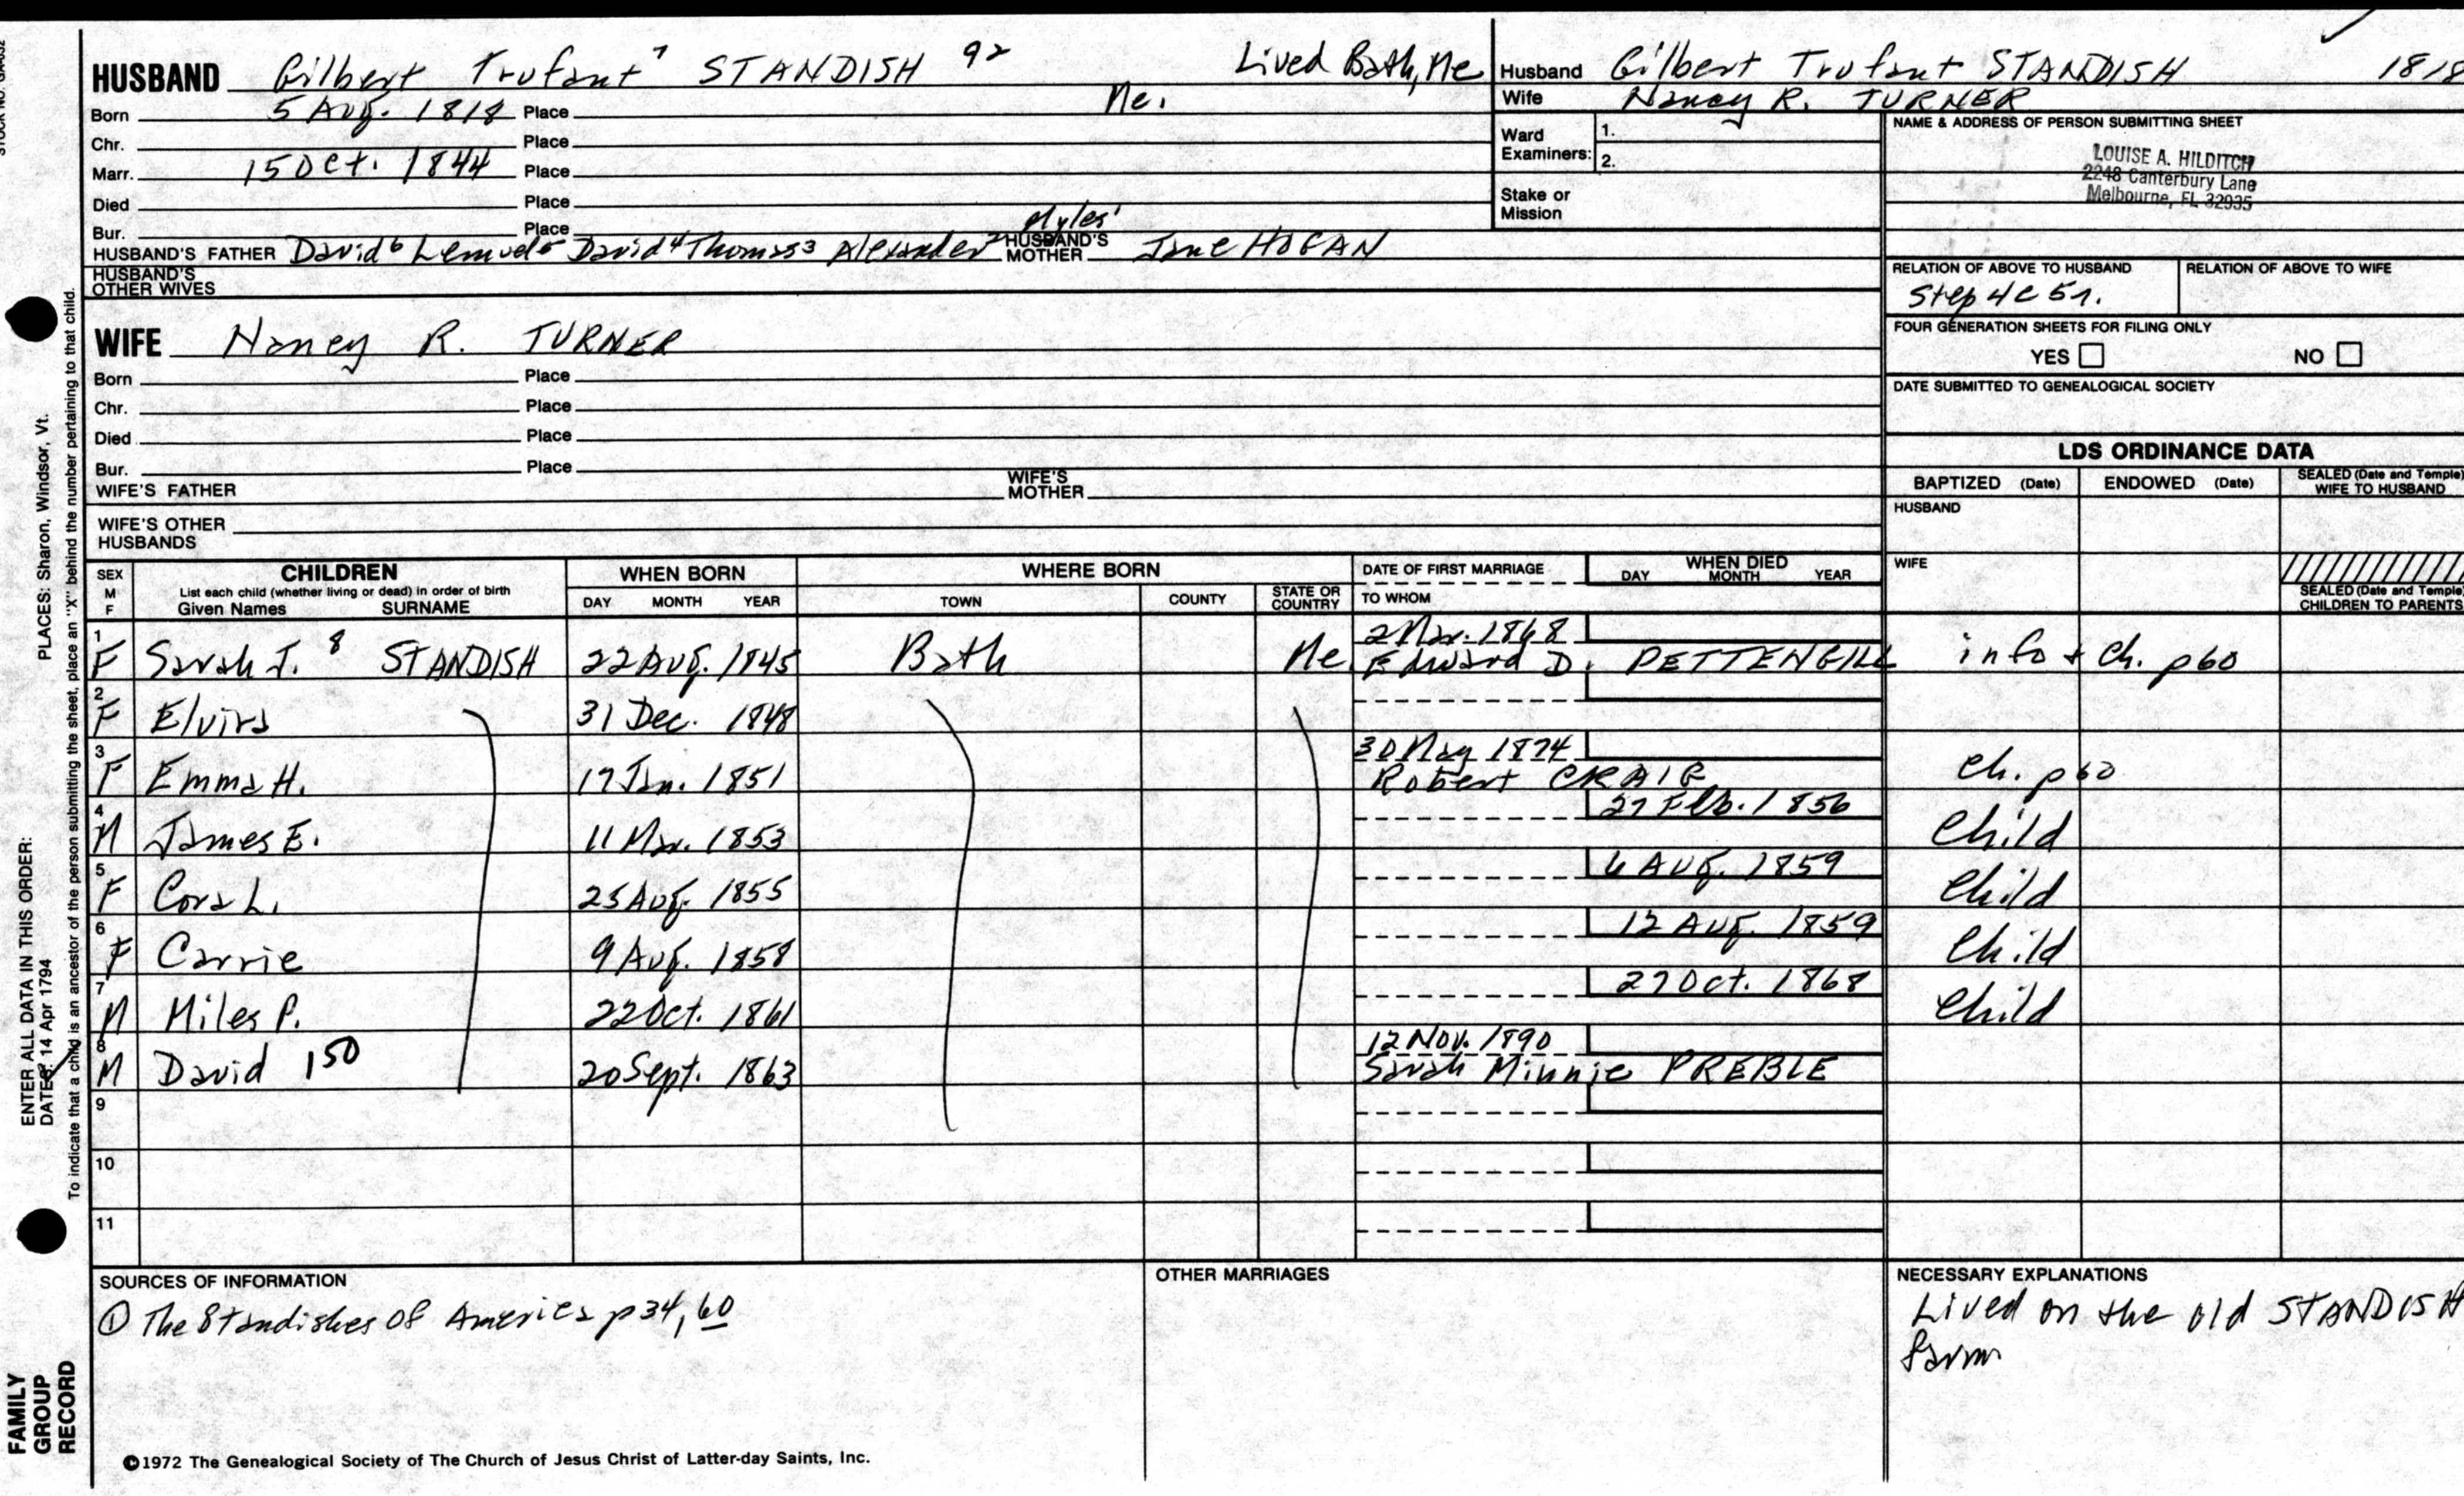 HUSBAND Gilbert Trufant 7 STANDISH 92 Lived Bath, Me
Born 5 Aug. 1818 Place Me.
Chr. Place
Marr. 15 Oct. 1844 Place
Died Place
Bur. Place
HUSBAND'S FATHER David 6 Lemuel 5 David 4 Thomas 3 Alexander 2 Myles 1 HUSBAND'S MOTHER Jane HOGAN
HUSBAND'S OTHER WIVES
WIFE Nancy R. TURNER
Born Place
Chr. Place
Died Place
Bur. Place
WIFE'S FATHER WIFE'S MOTHER
WIFE'S OTHER HUSBANDS
Husband Gilbert Trufant STANDISH 1818
Wife Nancy R. TURNER
Ward Examiners: 1. 2.
Stake or Mission
NAME & ADDRESS OF PERSON SUBMITTING SHEET
LOUISE A. HILDITCH
2248 Canterbury Lane
Melbourne, FL 32935
RELATION OF ABOVE TO HUSBAND RELATION OF ABOVE TO WIFE
Step 4C 5r.
FOUR GENERATION SHEETS FOR FILING ONLY
YES NO
DATE SUBMITTED TO GENEALOGICAL SOCIETY
LDS ORDINANCE DATA
BAPTIZED (Date) ENDOWED (Date) SEALED (Date and Temple) WIFE TO HUSBAND
HUSBAND
WIFE
SEALED (Date and Temple) CHILDREN TO PARENTS
SEX M F CHILDREN WHEN BORN WHERE BORN DATE OF FIRST MARRIAGE WHEN DIED
List each child (whether living or dead) in order of birth
Given Names SURNAME DAY MONTH YEAR TOWN COUNTY STATE OR COUNTRY TO WHOM DAY MONTH YEAR
1 F Sarah J. 8 STANDISH 22 Aug. 1845 Bath Me. 2 Mar. 1868 Edward D. PETTENGILL info + Ch. p60
2 F Elvira 31 Dec. 1848
3 F Emma H. 17 Jan. 1851 30 May 1874 Robert CRAIG Ch. p60
4 M James E. 11 Mar. 1853 27 Feb. 1856 Child
5 F Cora L. 25 Aug. 1855 6 Aug. 1859 Child
6 F Carrie 9 Aug. 1858 12 Aug. 1859 Child
7 M Miles P. 22 Oct. 1861 27 Oct. 1868 Child
8 M David 150 20 Sept. 1863 12 Nov. 1890 Sarah Minnie PREBLE
9
10
11
SOURCES OF INFORMATION
① The Standishes of America p34, 60
OTHER MARRIAGES
NECESSARY EXPLANATIONS
Lived on the old STANDISH
farm
©1972 The Genealogical Society of The Church of Jesus Christ of Latter-day Saints, Inc.
FAMILY
GROUP
RECORD
ENTER ALL DATA IN THIS ORDER:
DATES: 14 Apr 1794
PLACES: Sharon, Windsor, Vt.
To indicate that a child is an ancestor of the person submitting the sheet, place an "X" behind the number pertaining to that child.